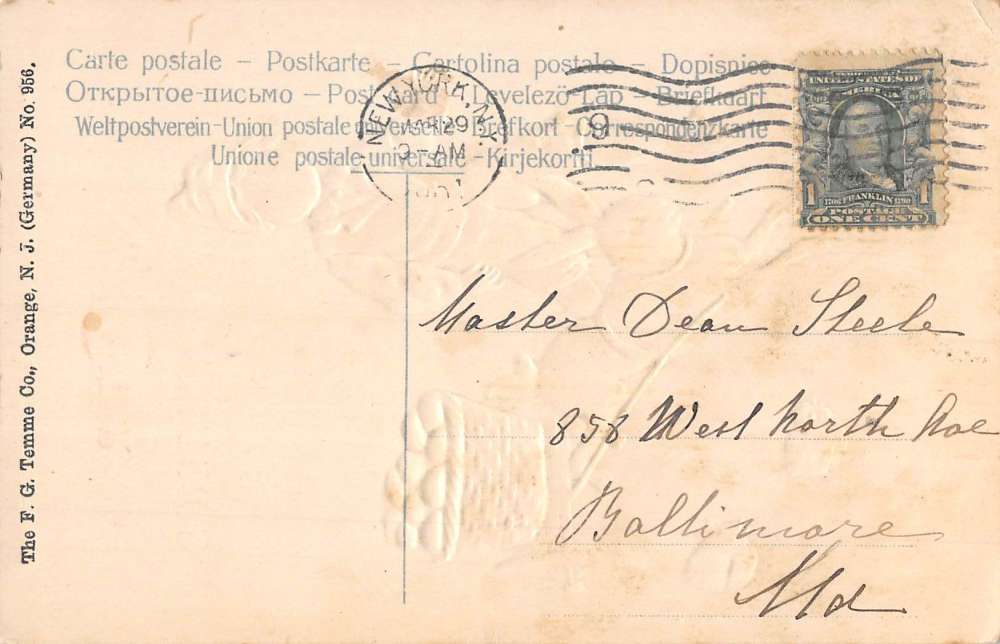 Carte postale – Postkarte – Cartolina postale – Dopisnice
Открытое-письмо – Post – Levelező-Lap – Briefkaart
Weltpostverein-Union postale universelle – Brefkort – Correspondenzkarte
Unione postale universale – Kirjekortti
NEW YORK, N.Y.
MAR 29
9 - AM
9
UNITED STATES OF
AMERICA
1 1
1706 FRANKLIN 1790
POSTAGE
ONE CENT
The F. G. Temme Co., Orange, N. J. (Germany) No. 956.
Master Dean Steele
858 West North Ave
Baltimore
Md